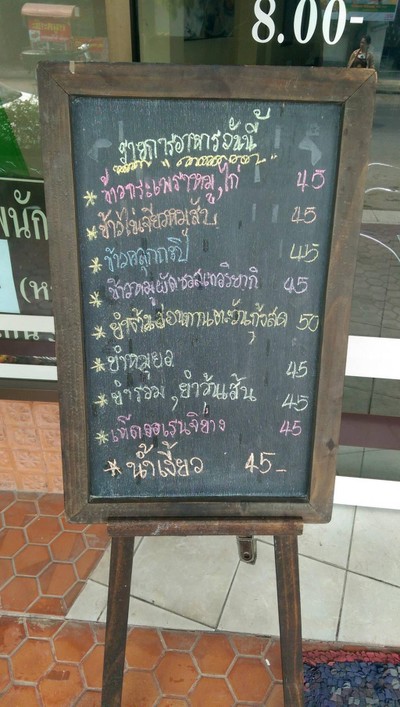 8.00-
รายการอาหารวันนี้
ข้าวกระเพราหมู,ไก่ 45
ข้าวไข่เจียวหมูสับ 45
ข้าวคลุกกะปิ 45
ข้าวหมูผัดซอสเทอริยากิ 45
กุ้งสด 50
ยำหมูยอ 45
ยำรวม, ยำวุ้นเส้น 45
45
น้ำเงี้ยว 45-